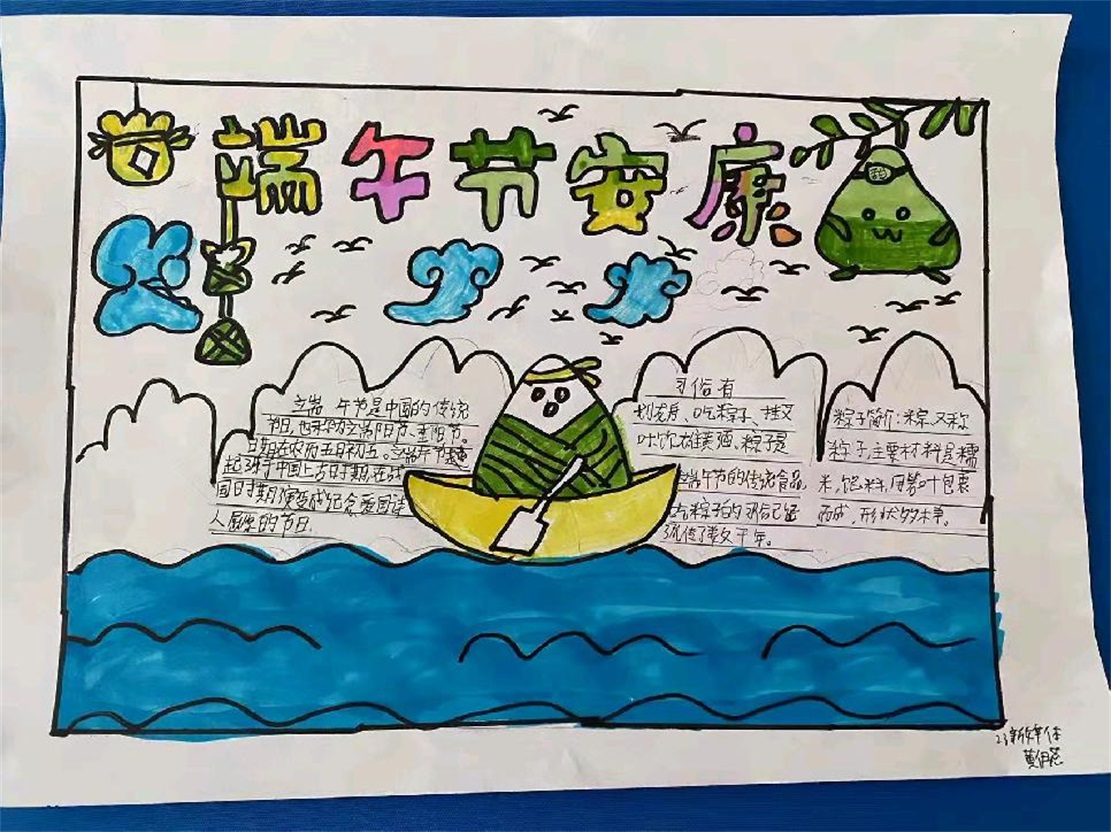 端午节安康
端午节是中国的传统
节日，也称为端阳节、重阳节。
日期在农历五月初五。端午节
起源于中国上古时期，在战
国时期演变成纪念爱国诗
人屈原的节日。
习俗有
划龙舟、吃粽子、挂艾
叶、饮雄黄酒、粽子是
端午节的传统食品
吃粽子的习俗已经
流传了数千年。
粽子简介：粽又称
粽子，主要材料是糯
米，馅料，用箬叶包裹
而成，形状多样。
23新媒体